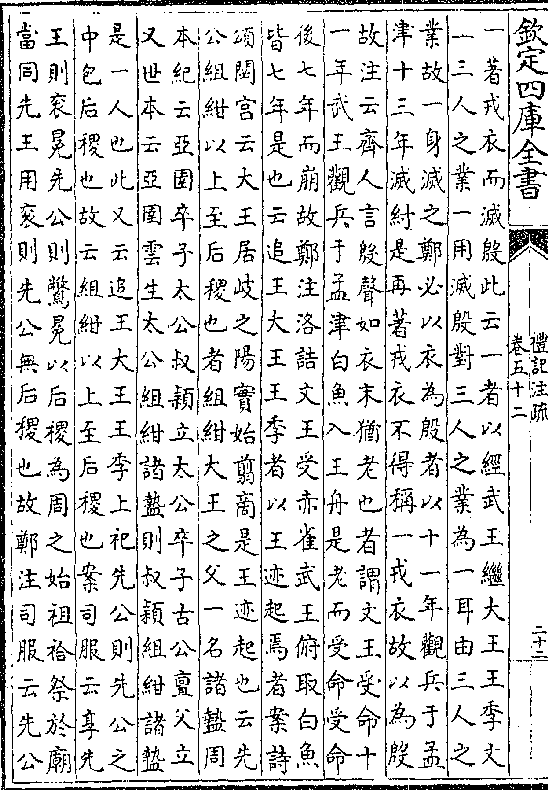 欽定四庫全書
禮記注疏
卷五十二
二十二
一著戎衣而滅殷此云一者以經武王繼大王王季文
一三人之業一用滅殷對三人之業為一耳由三人之
業故一身滅之鄭必以衣為殷者以十一年觀兵于孟
津十三年滅紂是再著戎衣不得稱一戎衣故以為殷
故注云齊人言殷聲如衣末猶老也者謂文王受命十
一年武王觀兵于孟津白魚入王舟是老而受命受命
後七年而崩故鄭注洛誥文王受赤雀武王俯取白魚
皆七年是也云追王大王王季者以王迹起焉者案詩
頌閟宮云大王居岐之陽實始翦商是王迹起也云先
公組紺以上至后稷也者組紺大王之父一名諸盩周
本紀云亞圉卒子太公叔穎立太公卒子古公亶父立
又世本云亞圉雲生太公組紺諸盩則叔穎組紺諸盩
是一人也此又云追王大王王季上祀先公則先公之
中包后稷也故云組紺以上至后稷也案司服云享先
王則衮冕先公則驚冕以后稷為周之始祖祫祭於廟
當同先王用衮則先公無后稷也故鄭注司服云先公